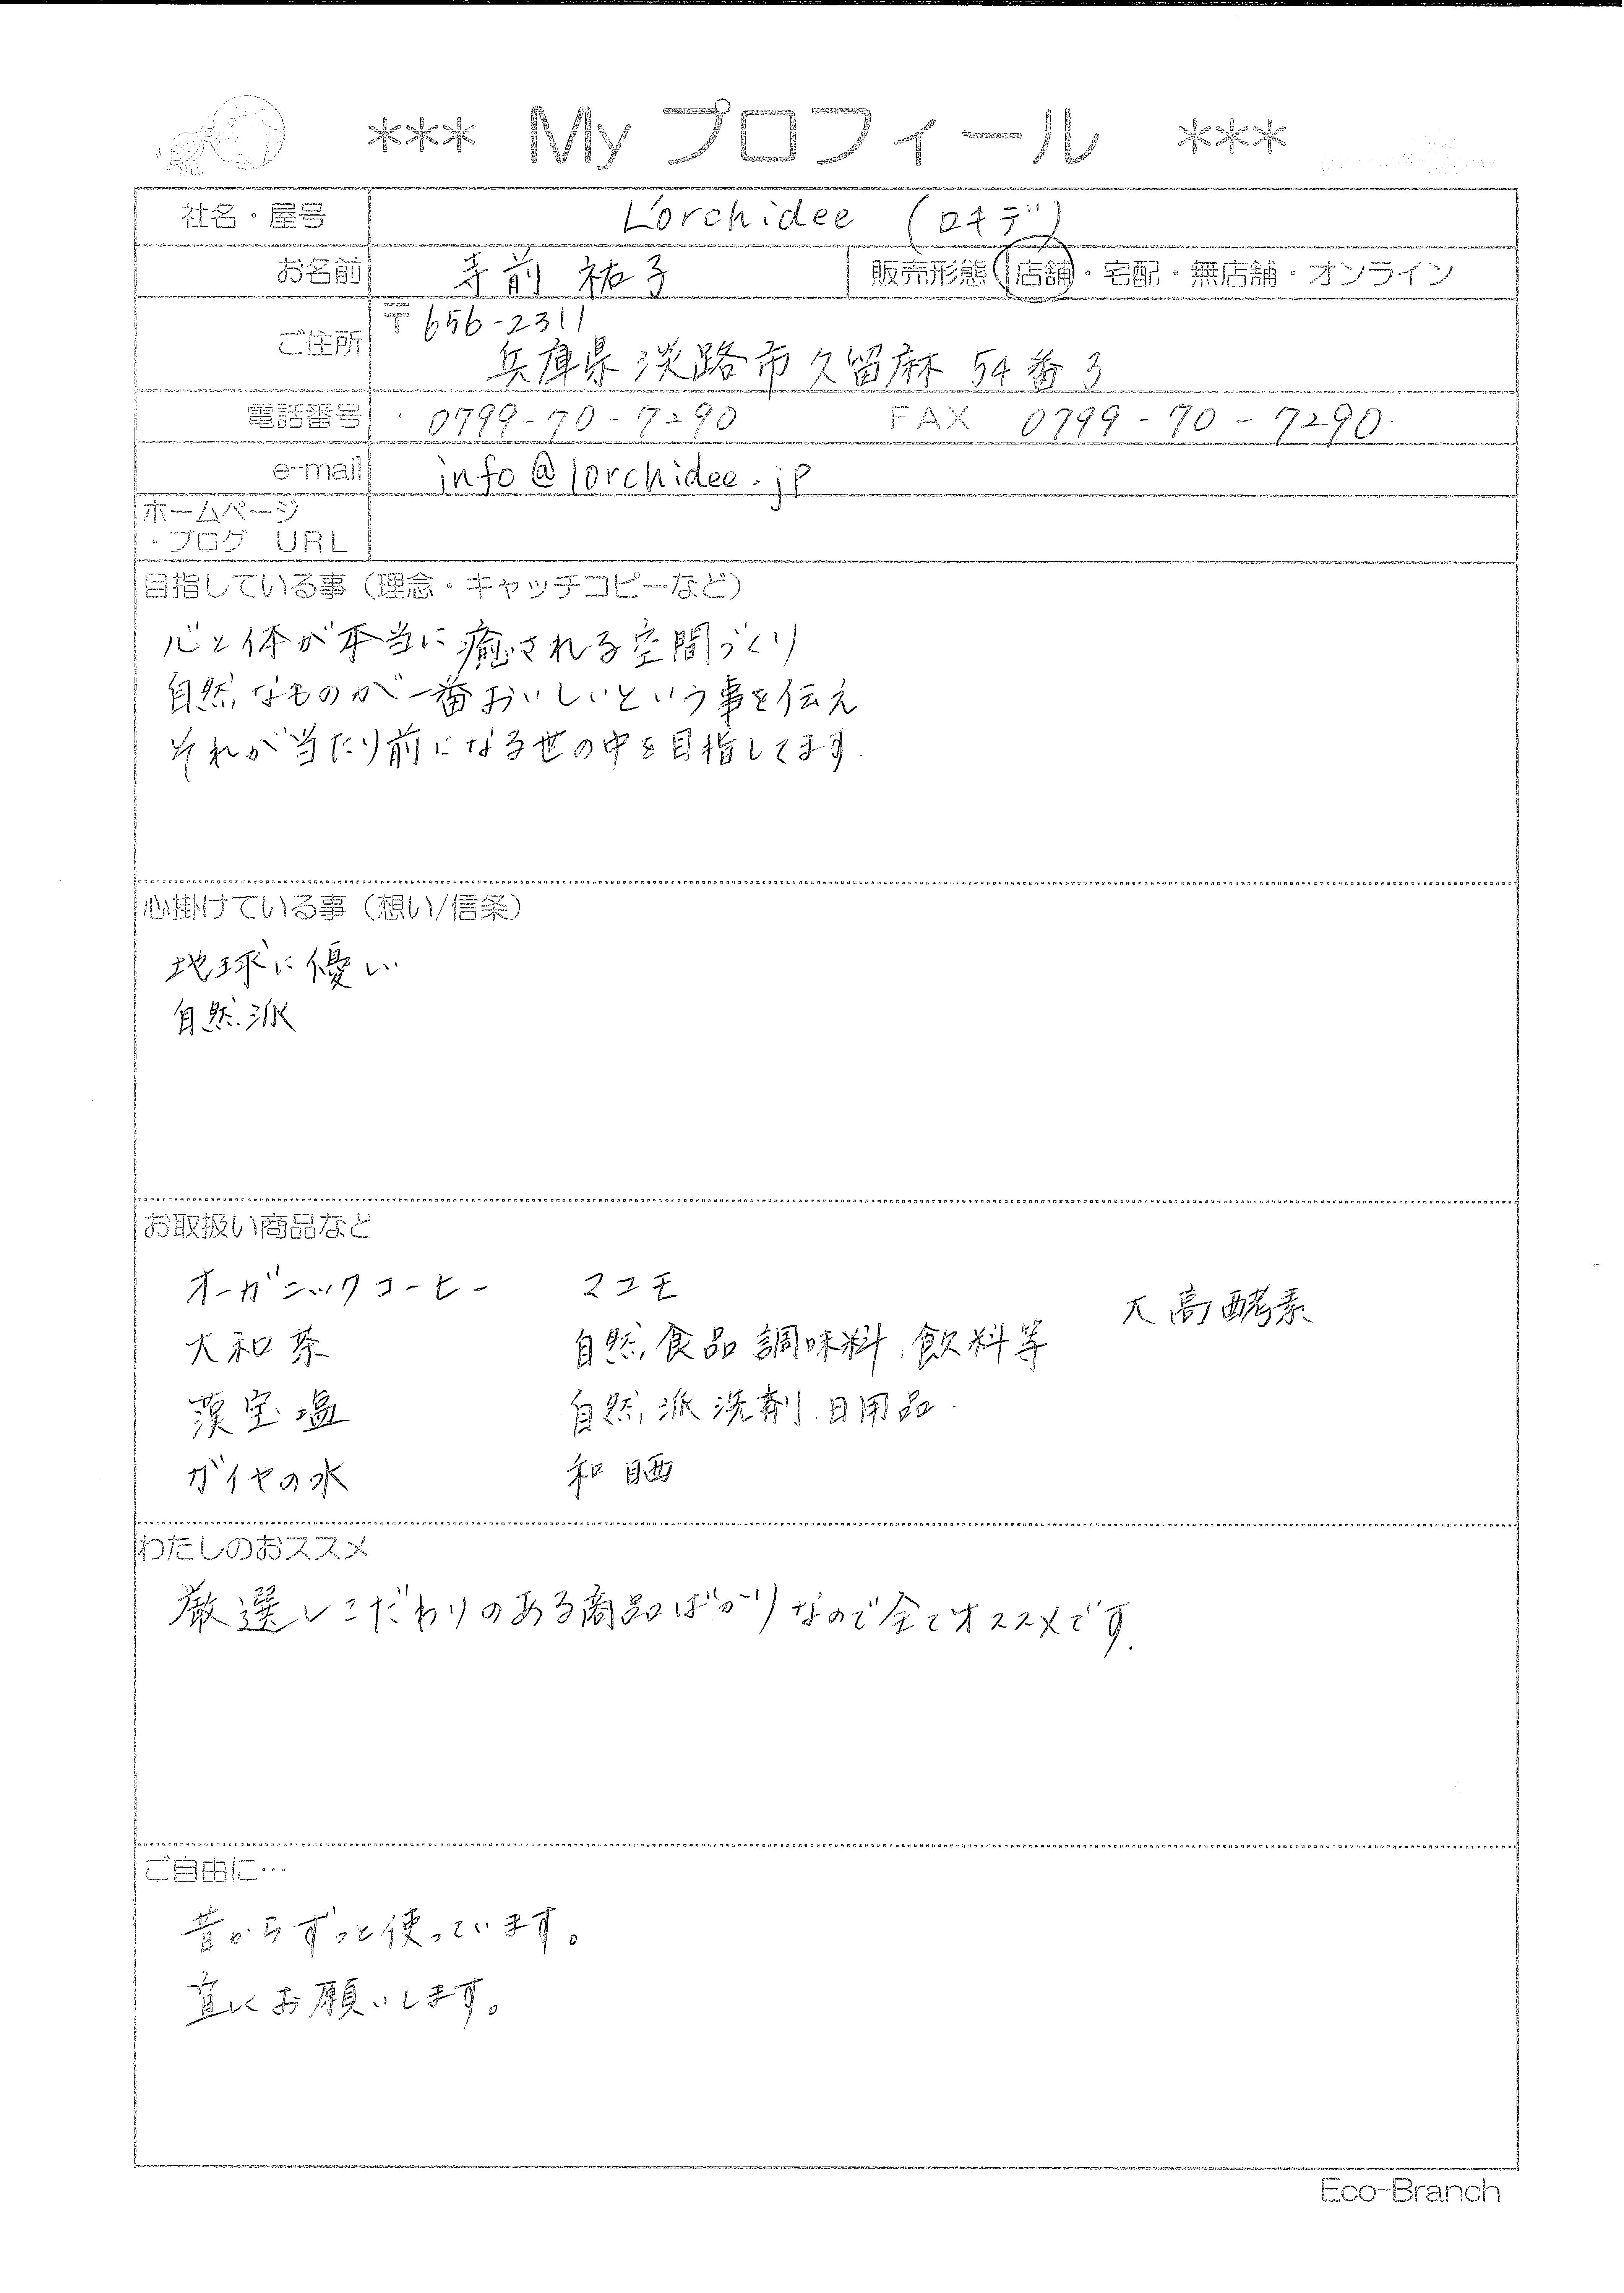 *** My プロフィール ***
社名・屋号 L'orchidee (ロキデ)
お名前 寺前 祐子 販売形態 店舗・宅配・無店舗・オンライン
ご住所 〒656-2311
兵庫県淡路市久留麻 54番3
電話番号 0799-70-7290 FAX 0799-70-7290
e-mail info@lorchidee.jp
ホームページ
・ブログ URL
目指している事（理念・キャッチコピーなど）
心と体が本当に癒される空間づくり
自然なものが一番おいしいという事を伝え
それが当たり前になる世の中を目指してます.
心掛けている事（想い/信条）
地球に優い
自然派
お取扱い商品など
オーガニックコーヒー マコモ
大高酵素
大和茶 自然食品 調味料.飲料等
藻宝塩 自然派洗剤.日用品.
ガイヤの水 和晒
わたしのおススメ
厳選しこだわりのある商品ばかりなので全てオススメです.
ご自由に…
昔からずっと使っています。
宜しくお願いします。
Eco-Branch